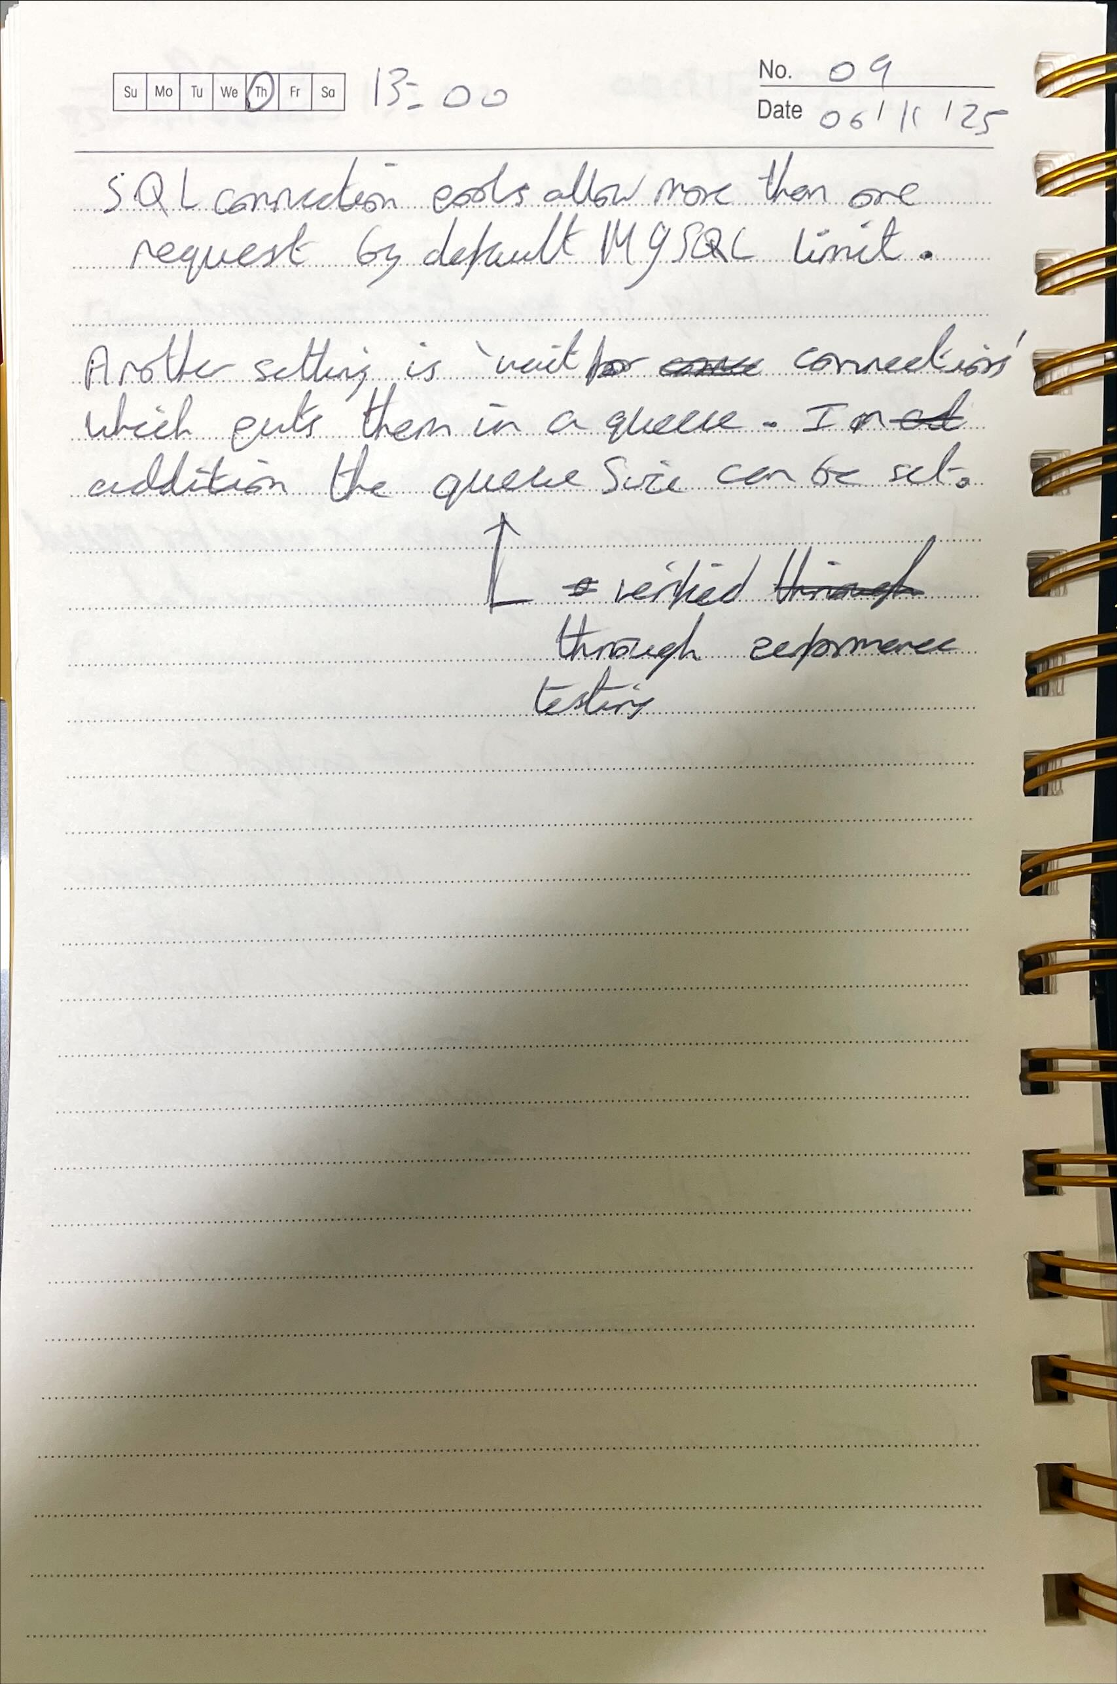 Su Mo Tu We Th Fr Sa 13:00 No. 09
Date 06/11/25
SQL connection pools allow more than one
request by default MySQL limit.
Another setting is 'wait for connections'
which puts them in a queue. In
addition the queue size can be set.
verified
through performance
testing